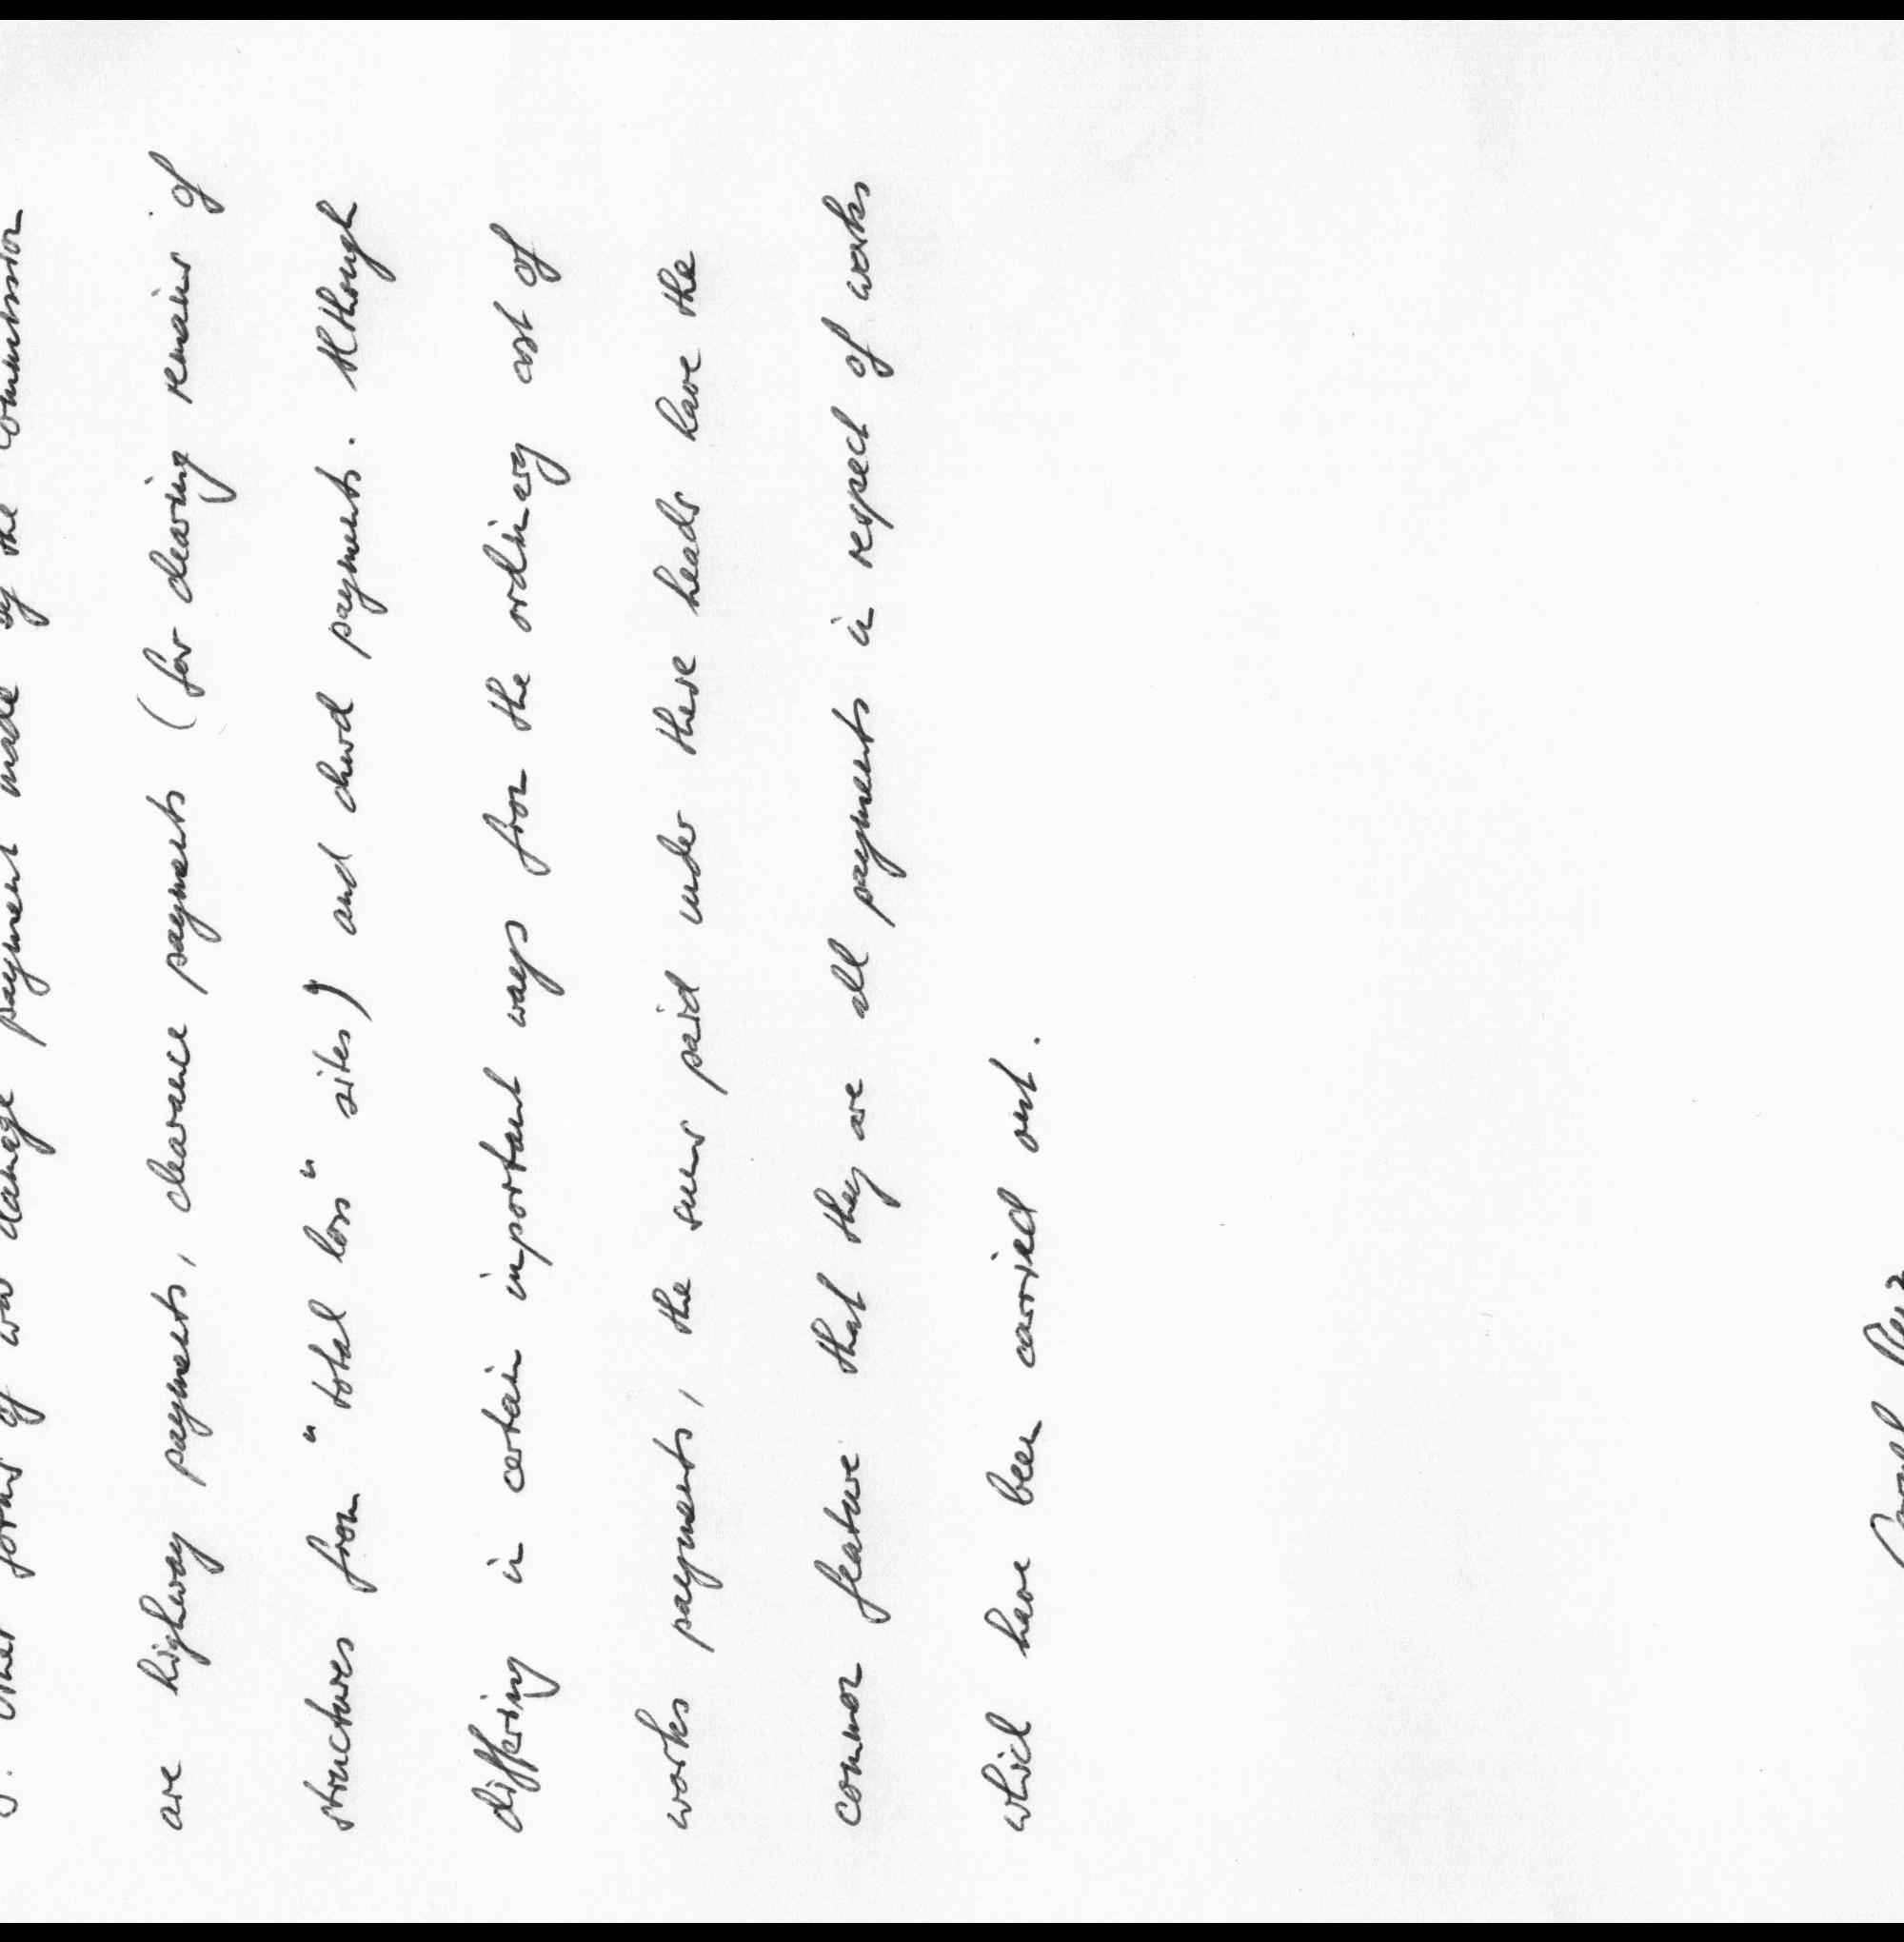 3. Other forms of war damage payment made by the Commission
are highway payments, clearance payments (for clearing remains of
structures from "total loss" sites) and church payments. Although
differing in certain important ways from the ordinary cost of
works payments, the sums paid under these heads have the
common feature that they are all payments in respect of works
which have been carried out.